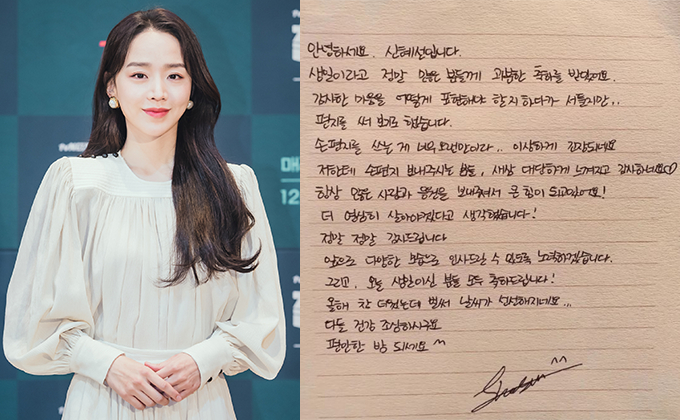 안녕하세요. 신혜선입니다.
생일이라고 정말 많은 분들께 과분한 축하를 받았어요.
감사한 마음을 어떻게 표현해야 할지 하다가 서툴지만..
편지를 써 보기로 했습니다.
손편지를 쓰는 게 너무 오랜만이라.. 이상하게 긴장되네요
저한테 손편지 보내주시는 분들, 새삼 대단하게 느껴지고 감사하네요♡
항상 많은 사랑과 응원을 보내줘서 큰 힘이 되고있어요!
더 열심히 살아야겠다고 생각했습니다!
정말 정말 감사드립니다
앞으로 다양한 모습으로 인사드릴 수 있도록 노력하겠습니다.
그리고, 오늘 생일이신 분들 모두 축하드립니다!
올해 참 더웠는데 벌써 날씨가 선선해지네요...
다들 건강 조심하시구요
편안한 밤 되세요 ^^
tvN
12